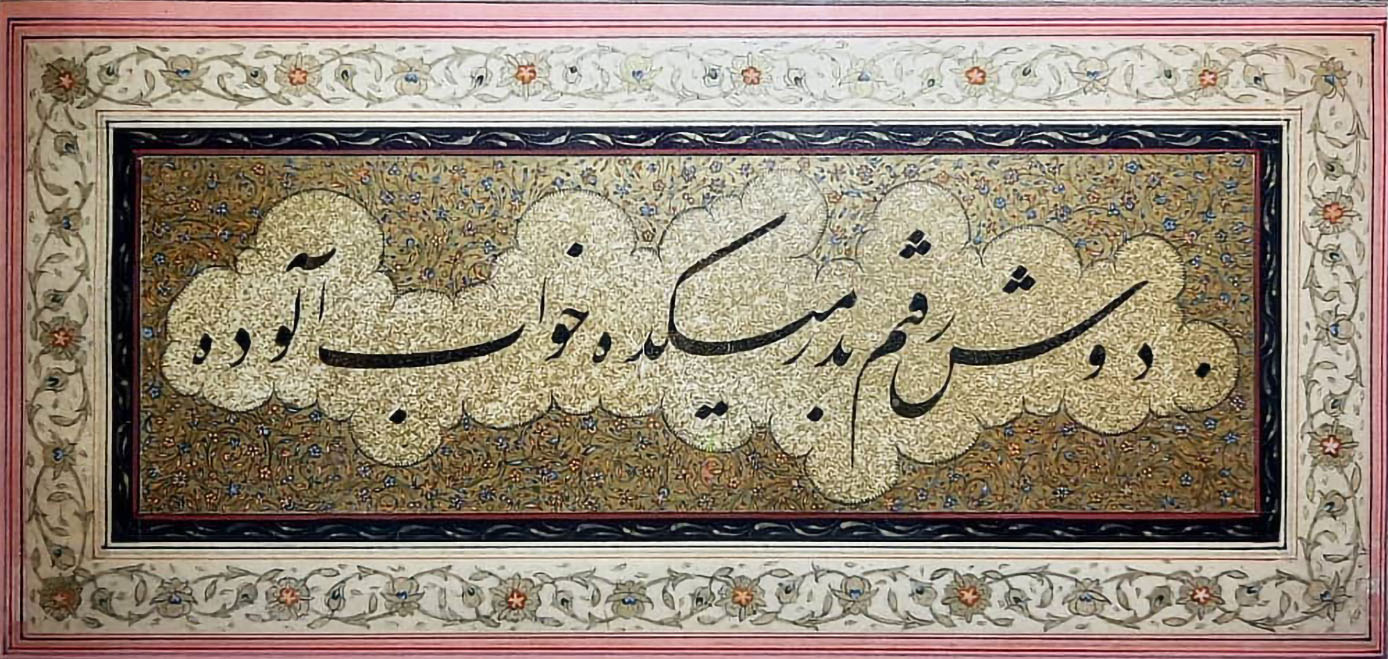 دوش رفتم بدر میکده خواب آلوده